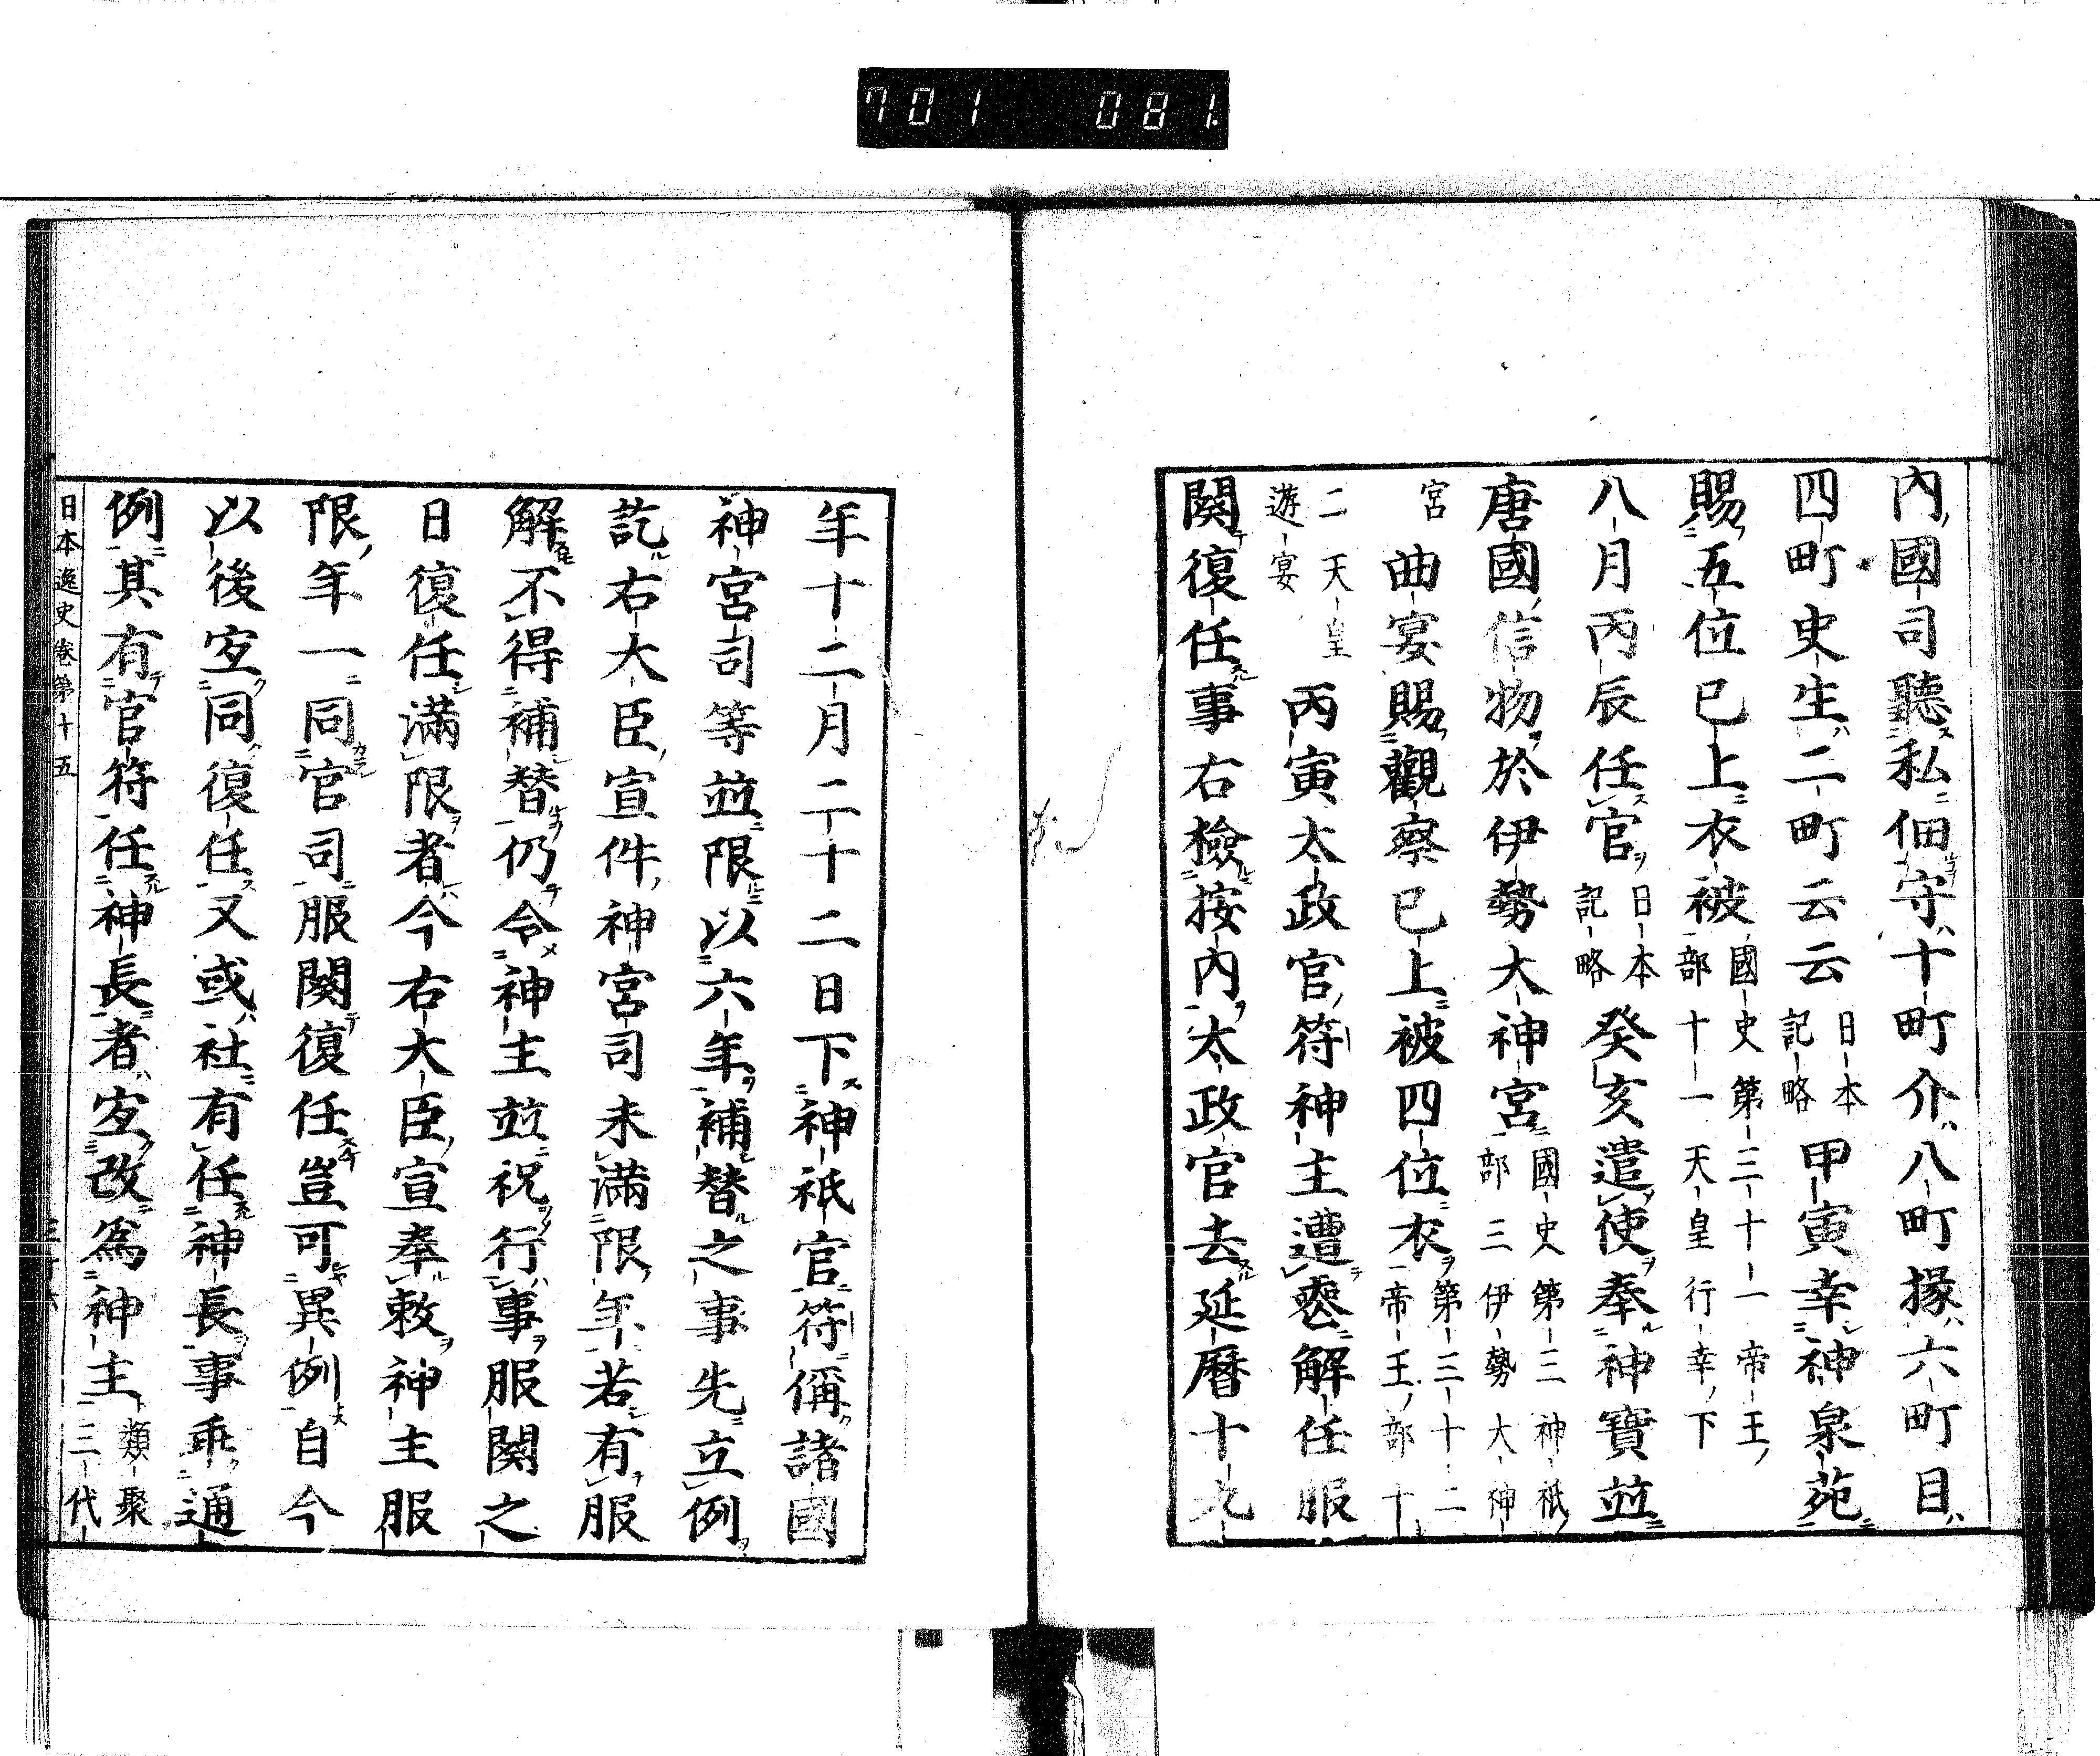 701 081
內國司聽私佃守十町介八町掾六町目
四町史生二町云云日本記略甲寅幸神泉苑
賜五位已上衣被國史第三十一帝王部十一天皇行幸下
八月丙辰任官日本記略癸亥遣使奉神寶並
唐國信物於伊勢大神宮國史第三神祇部三伊勢大神
宮曲宴賜觀察已上被四位衣第三十二帝王部十
二天皇遊宴丙寅太政官符神主遭喪解任服
闋復任事右檢按內太政官去延曆十九
年十二月二十二日下神祇官符偁諸國
神宮司等並限以六年補替之事先立例
訖右大臣宣件神宮司未滿限年若有服
解不得補替仍令神主並祝行事服闋之
日復任滿限者今右大臣宣奉敕神主服
限年一同官司服闋復任豈可異例自今
以後宜同復任又或社有任神長事乖通
例其有官符任神長者宜改為神主類聚三代
日本逸史卷第十五